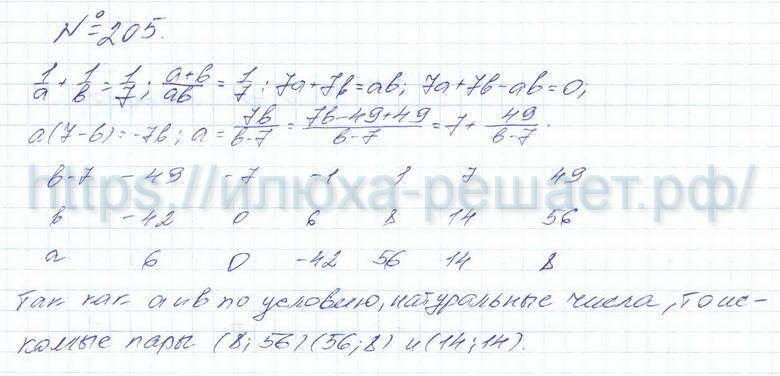 № 205.
1/a + 1/b = 1/7; (a+b)/ab = 1/7; 7a+7b=ab; 7a+7b-ab=0;
a(7-b)=-7b; a = 7b/(b-7) = (7b-49+49)/(b-7) = 7 + 49/(b-7).
b-7 -49 -7 -1 1 7 49
https://илюха-решает.рф/
b -42 0 6 8 14 56
a 6 0 -42 56 14 8
Так как a и b по условию, натуральные числа, то ис-
комые пары (8; 56) (56; 8) и (14; 14).